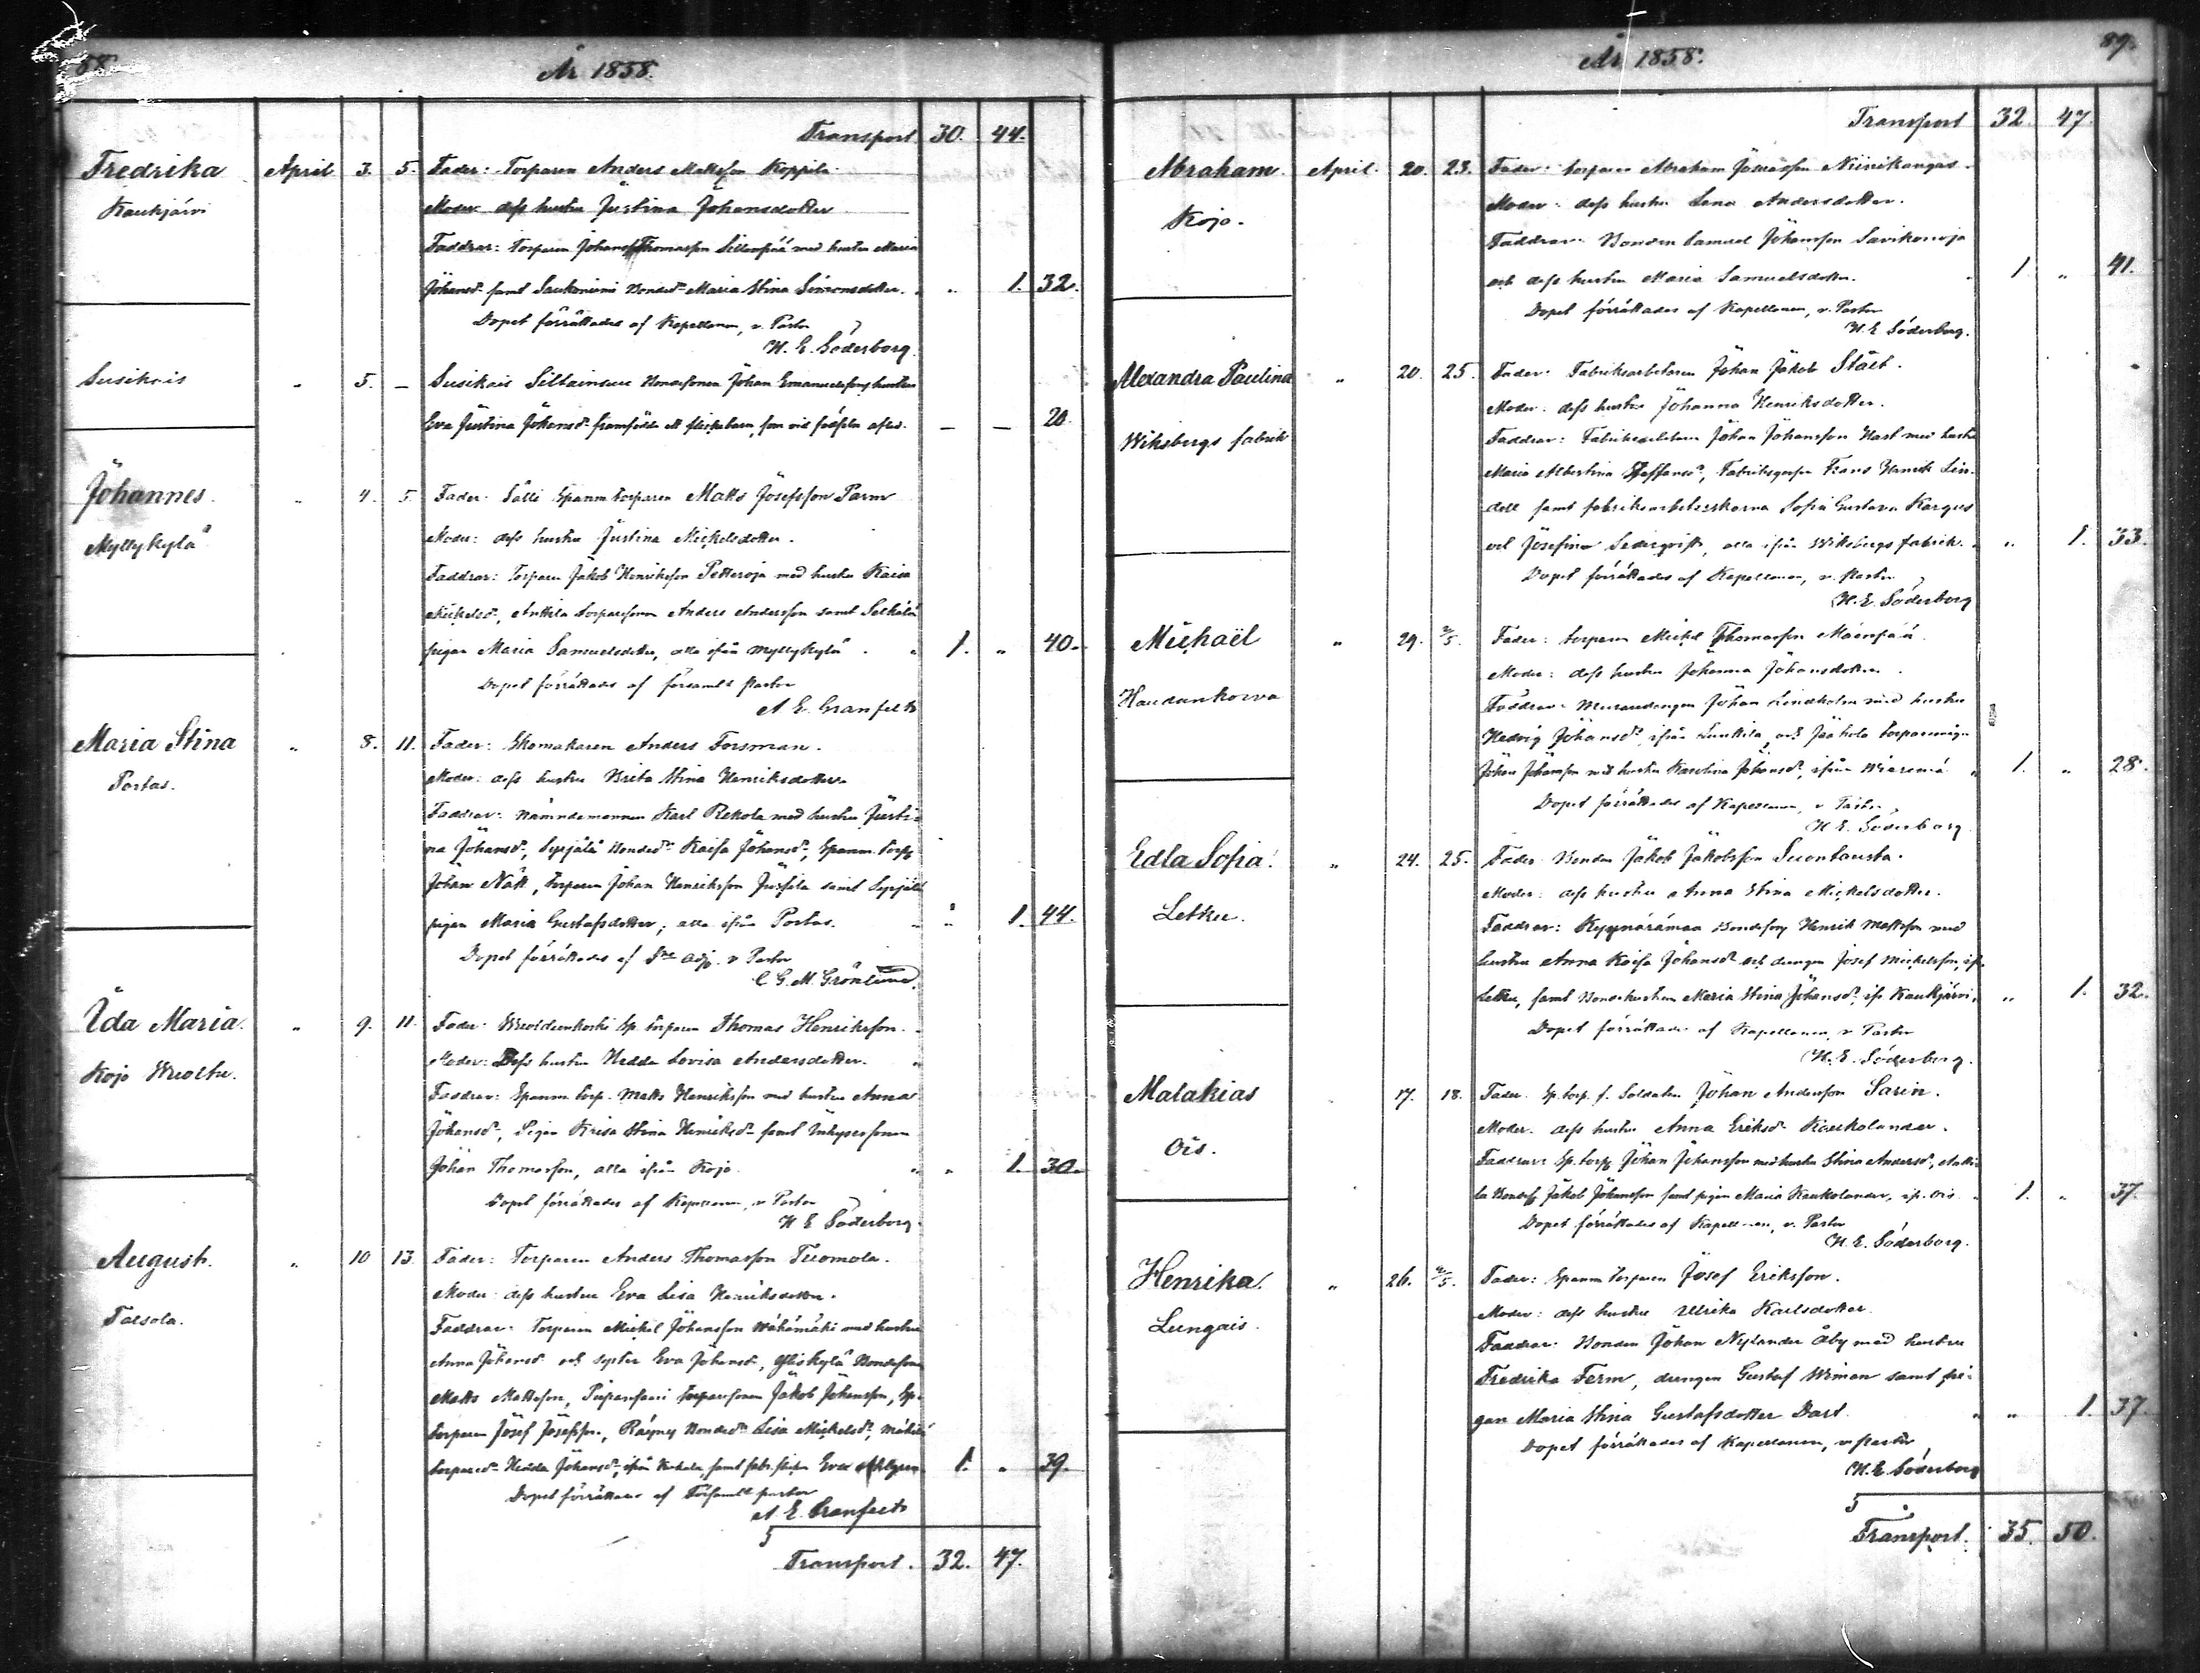 88.
År 1858.
Transport 30. 44.
Fredrika April 3. 5. Fader: Torparen Anders Mattsson Koppila
Kaukjärvi
Moder dess hustru Justina Johansdotter
Faddrar: Torparen Johan Thomasson Sillanpää med hustru Maria
Johansdr samt Saukoniemi Bondedr Maria Stina Simonsdotter. „ 1. 32.
Dopet förrättades af Kapellanen, v. Pastor
H. E. Söderborg.
Susikais „ 5. – Susikais Johan Emanuelssons hustru
Eva Justina Johansdr framfödde ett flickebarn, som vid — — 20.
Johannes. „ 4. 5. Fader: Matts Josefsson Parm
Myllykylä
Moder: dess hustru Justina Mickelsdotter.
Faddrar: Torparen Jakob Henriksson Petteroja med hustru Kaisa
Mickelsdr, Anttila torparesonen Anders Andersson samt
pigan Maria Samuelsdotter, alla ifrån Myllykylä. 1. „ 40.
Dopet förrättades af församls Pastor
A. E. Granfelt
Maria Stina „ 8. 11. Fader: Skomakaren Anders Forsman.
Portas.
Moder: dess hustru Brita Stina Henriksdotter
Faddrar: Nämndemannen Karl Rekola med hustru Justi-
na Johansdr, Syrjälä Bondedr Kaisa Johansdr, Spanm. torp.
Johan Näk, torparen Johan Henriksson Jussila samt Syrjälä
pigan Maria Gustafsdotter, alla ifrån Portas. „ 1. 44.
Dopet förrättades af adj. v. Pastor
C. G. M. Grönlund.
Ida Maria. „ 9. 11. Fader: Sp. torparen Thomas Henriksson.
Kojo
Moder: Dess hustru Hedda Lovisa Andersdotter.
Faddrar: Spanm. torp. Matts Henriksson med hustru Anna
Johansdr, Pigan Krisa Stina Henriksdr samt Inhysessonen
Johan Thomasson, alla ifrån Kojo. „ 1. 30.
Dopet förrättades af Kapellanen, v. Pastor
H. E. Söderborg.
August. „ 10 13. Fader: Torparen Anders Thomasson Tuomola.
Talsola.
Moder: dess hustru Eva Lisa Henriksdotter.
Faddrar: Torparen Mickel Johansson Wähämäki med hustru
Anna Johansdr och syster Eva Johansdr, Yliskylä Bondesonen
Matts Mattsson, torparesonen Jakob Johansson, Sp.
torparen Josef Josefsson, Räyny Bondedr Lisa Mickelsdr, Mäkilä
torparedr Hedda Johansdr, ifrån samt Eva Ahlgren 1. „ 39.
Dopet förrättades af Församls pastor
A. E. Granfelt
Transport. 32. 47.
89.
År 1858.
Transport 32. 47.
Abraham. April. 20. 23. Fader: torparen Abraham Niinikangas.
Kojo.
Moder: dess hustru Lena Andersdotter.
Faddrar: Bonden Samuel Johansson Savikonoja
och dess hustru Maria Samuelsdotter. 1 „ 41.
Dopet förrättades af Kapellanen, v. Pastor
H. E. Söderborg.
Alexandra Paulina „ 20. 25. Fader: Fabriksarbetaren Johan Jakob Stålt.
Wiksbergs fabrik
Moder: dess hustru Johanna Henriksdotter.
Faddrar: Fabriksarbetaren Johan Johansson Hast med hustru
Maria Albertina Staffansdr, Frans Henrik Lin-
dell samt fabriksarbeterskorna Sofia Gustava Kargus
och Josefina Sederqvist, alla ifrån Wiksbergs fabrik. „ 1. 33.
Dopet förrättades af Kapellanen, v. Pastor
H. E. Söderborg
Michaël „ 29. 2/5. Fader: torparen Mickel Thomasson Mäenpää.
Haudankorva
Moder: dess hustru Johanna Johansdotter.
Faddrar: Johan Lindholm med hustru
Hedvig Johansdr, ifrån och Jaakola
Johan Johansson med hustru Karolina Johansdr, ifrån 1. „ 28.
Dopet förrättades af Kapellanen, v. Pastor
H. E. Söderborg
Edla Sofia. „ 24. 25. Fader: Bonden Jakob Jakobsson Suontausta.
Letku.
Moder: dess hustru Anna Stina Mickelsdotter.
Faddrar: Kyynäränmaa Bondeson Henrik Mattsson med
hustru Anna Kaisa Johansdr och drengen Josef Mickelsson, ifr.
Letku, samt Bondehustrun Maria Stina Johansdr, ifr. Kaukjärvi. „ 1. 32.
Dopet förrättades af Kapellanen, v. Pastor
H. E. Söderborg.
Malakias 17. 18. Fader: Sp. torp. f. Soldaten Johan Andersson Sarin.
Ois.
Moder: dess hustru Anna Eriksdr Kaukolander.
Faddrar: Sp. torp. Johan Johansson med hustru Stina Andersdr, Antti-
la Jakob Johansson samt pigan Maria Kaukolander, ifr. Ois 1. „ 37.
Dopet förrättades af Kapellanen, v. Pastor
H. E. Söderborg.
Henrika. „ 26. 2/5. Fader: Spanm torparen Josef Eriksson.
Lungais.
Moder: dess hustru Ulrika Karlsdotter.
Faddrar: Bonden Johan Nylander Åby med hustru
Fredrika Ferm, drengen Gustaf Wiman samt pi-
gan Maria Stina Gustafsdotter Dart. „ 1. 37
Dopet förrättades af Kapellanen, v. Pastor
H. E. Söderborg
Transport. 35. 50.